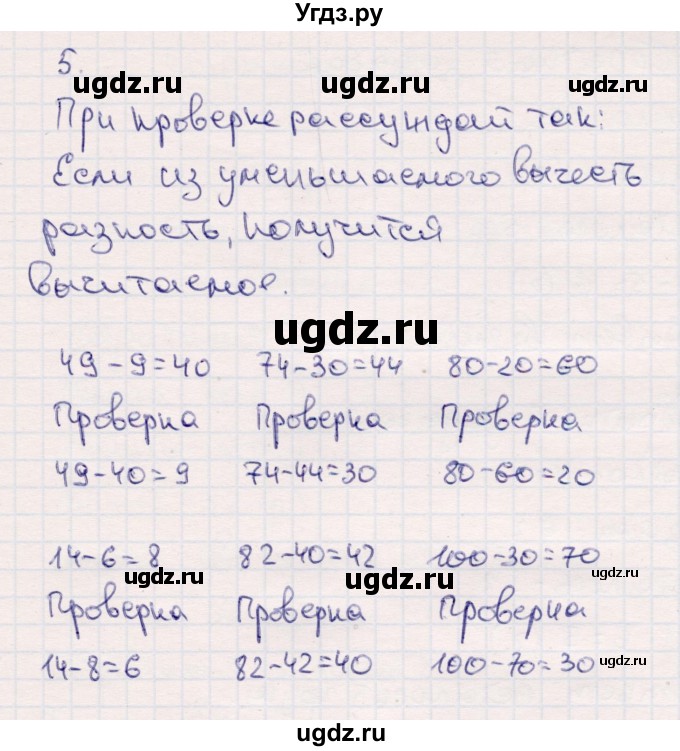 Угдз.ру
5.
ugdz.ru ugdz.ru
При проверке рассуждай так:
Если из уменьшаемого вычесть
разность, получится
вычитаемое.
ugdz.ru
49-9=40 74-30=44 80-20=60
Проверка Проверка Проверка
49-40=9 74-44=30 80-60=20
14-6=8 82-40=42 100-30=70
ugdz.ru ugdz.ru ugdz.ru
Проверка Проверка Проверка
14-8=6 82-42=40 100-70=30 ugdz.ru
ugdz.ru